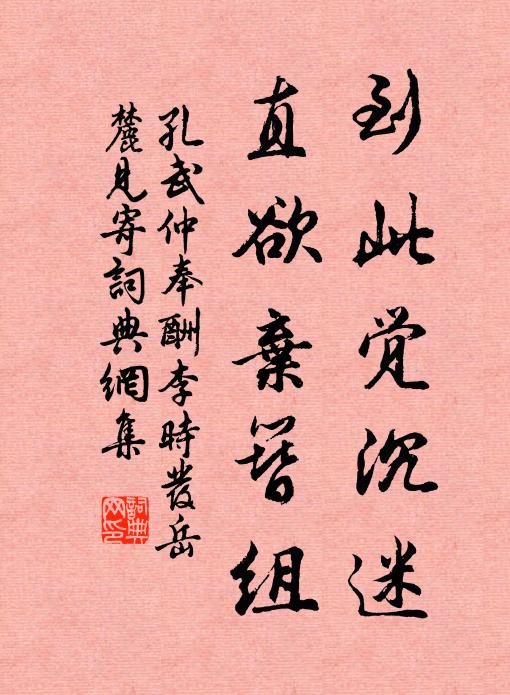 到此觉沉迷
直欲棄簪組
孔武仲奉酬李時發岳
麓見寄詞典網集
詞典网印